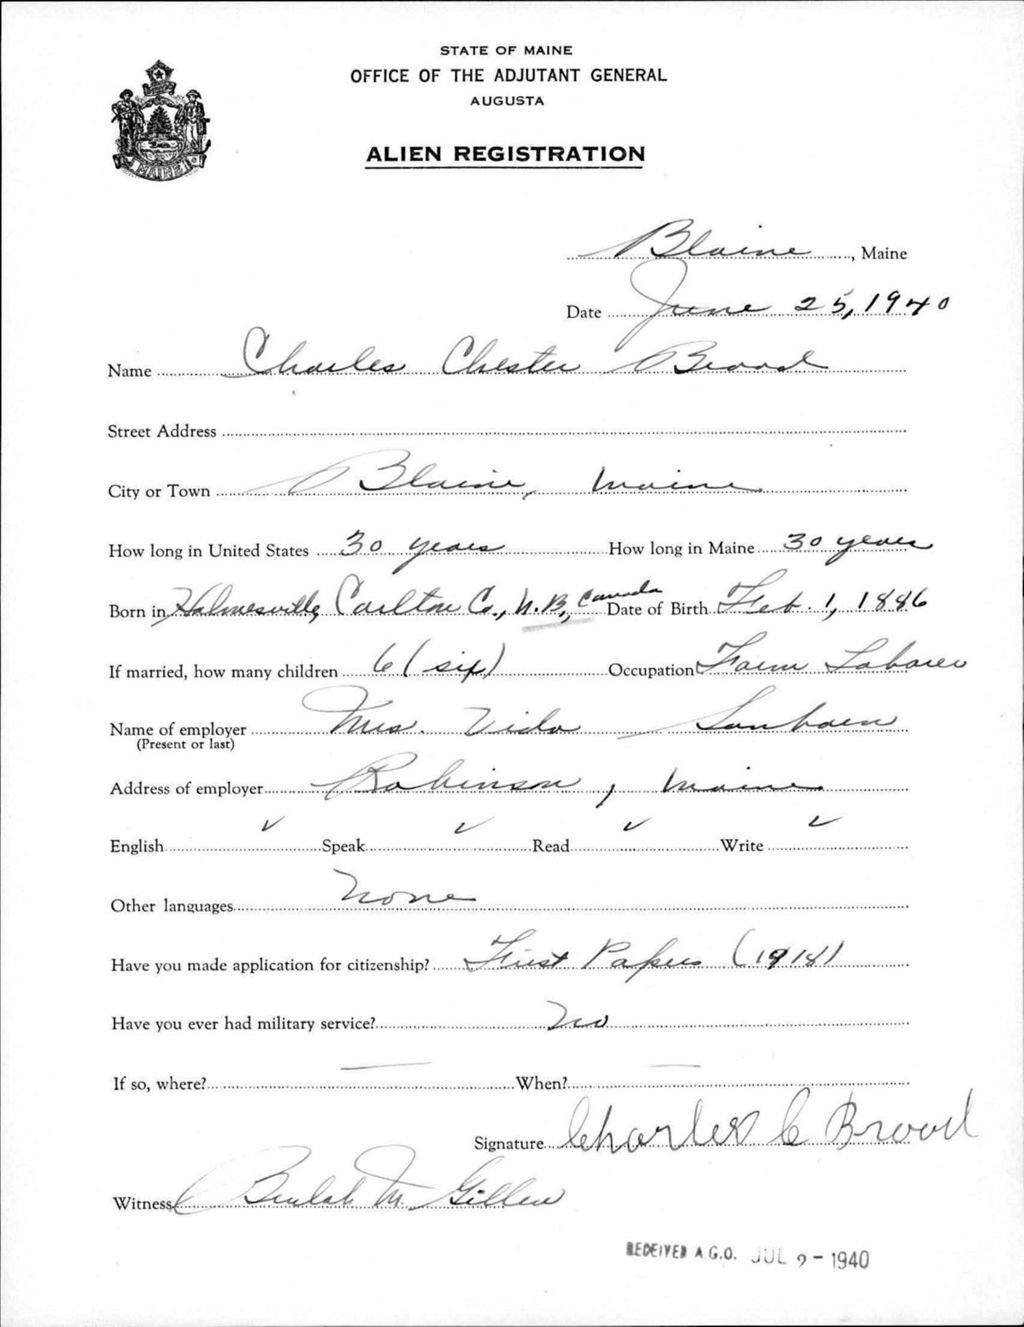 STATE OF MAINE
OFFICE OF THE ADJUTANT GENERAL
AUGUSTA
ALIEN REGISTRATION
MAINE
Blaine, Maine
Date June 25, 1940
Name Charles Chester Brood
Street Address
City or Town Blaine, Maine
How long in United States 30 years How long in Maine 30 years
Born in Holmesville, Carlton Co., N.B, Canada Date of Birth Feb. 1, 1886
If married, how many children 6 (six) Occupation Farm Laborer
Name of employer Mrs. Vida
(Present or last)
Address of employer Robinson, Maine
English ✓ Speak ✓ Read ✓ Write ✓
Other languages None
Have you made application for citizenship? First Papers (1918)
Have you ever had military service? No
If so, where? — When? —
Signature Charles C Brood
Witness Beulah M.
RECEIVED A.G.O. JUL 2 - 1940